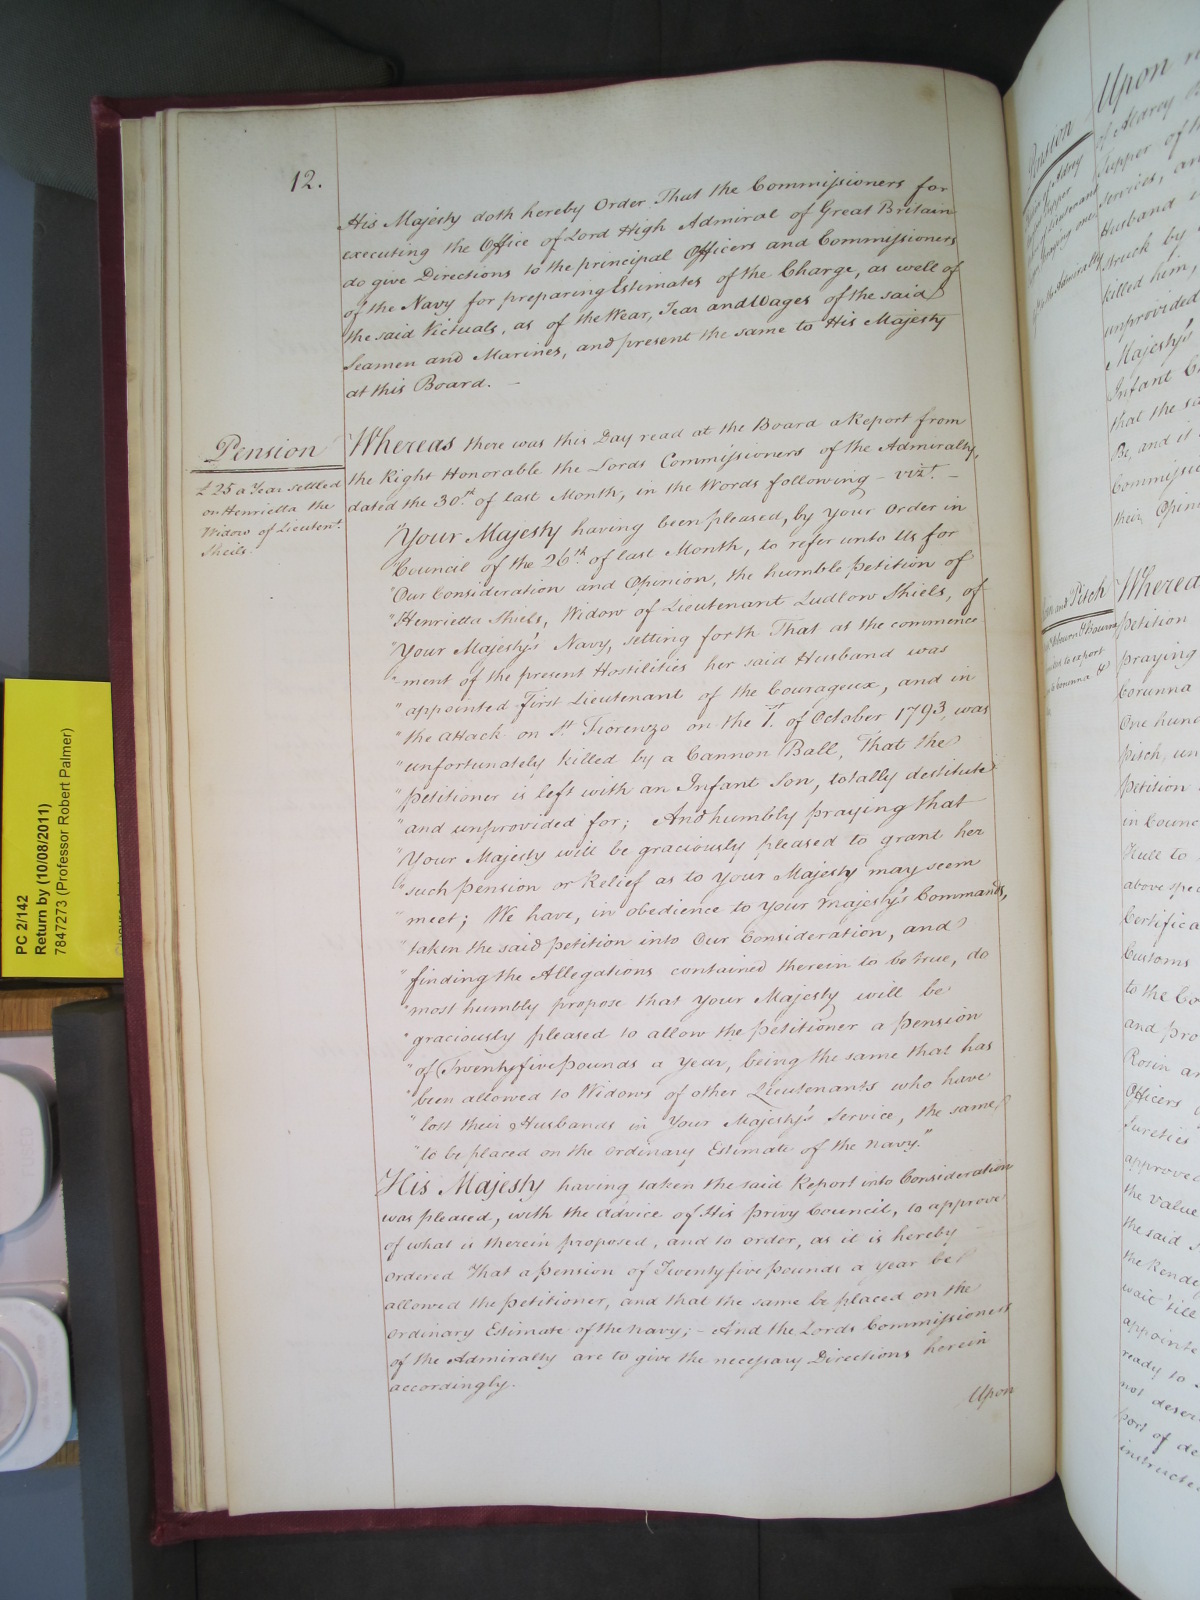 12.
His Majesty doth hereby Order That the Commissioners for
executing the Office of Lord High Admiral of Great Britain
do give Directions to the principal Officers and Commissioners
of the Navy for preparing Estimates of the Charge, as well of
the said Victuals, as of the Wear, Tear and Wages of the said
Seamen and Marines, and present the same to His Majesty
at this Board. -
Pension
£25 a Year settled
on Henrietta the
Widow of Lieutent.
Sheils.
Whereas there was this Day read at the Board a Report from
the Right Honorable the Lords Commissioners of the Admiralty,
dated the 30th of last Month, in the Words following - vizt. -
"Your Majesty having been pleased, by Your Order in
"Council of the 26th of last Month, to refer unto Us for
"Our Consideration and Opinion, the humble Petition of
"Henrietta Shiels, Widow of Lieutenant Ludlow Shiels, of
"Your Majesty's Navy, setting forth That at the commence
"-ment of the present Hostilities her said Husband was
"appointed First Lieutenant of the Courageux, and in
"the attack on St. Fiorenzo on the 1st. of October 1793, was
"unfortunately killed by a Cannon Ball, That the
"Petitioner is left with an Infant Son, totally destitute
"and unprovided for; And humbly praying that
"Your Majesty will be graciously pleased to grant her
"such Pension or Relief as to Your Majesty may seem
"meet; We have, in obedience to Your Majesty's Commands,
"taken the said Petition into Our Consideration, and
"finding the Allegations contained therein to be true, do
"most humbly propose that Your Majesty will be
"graciously pleased to allow the Petitioner a Pension
"of Twenty five Pounds a Year, being the same that has
"been allowed to Widows of other Lieutenants who have
"lost their Husbands in Your Majesty's Service, the same
"to be placed on the Ordinary Estimate of the Navy."
His Majesty having taken the said Report into Consideration
was pleased, with the advice of His Privy Council, to approve
of what is therein proposed, and to order, as it is hereby
Ordered That a Pension of Twenty five Pounds a year be
allowed the Petitioner, and that the same be placed on the
Ordinary Estimate of the Navy; - And the Lords Commissioners
of the Admiralty are to give the necessary Directions herein
accordingly.
Upon
PC 2/142
Return by (10/08/2011)
7847273 (Professor Robert Palmer)
Pension
Upon
of Aldrey
Supper of
Services, an
Husband
struck by
killed him,
unprovided
Majesty's
Infant
that the sa
Be, and it
Commissio
their Opin
and Pitch
Wherea
Petition
praying
Corunna
One hun
Pitch, un
Petition
in Counc
Hull to
above spe
Certifica
Customs
to the Co
and pro
Rosin an
Officers
Sureties
approved
the Value
the said
the Rende
wait till
appointe
ready to
not deser
port of de
instructe